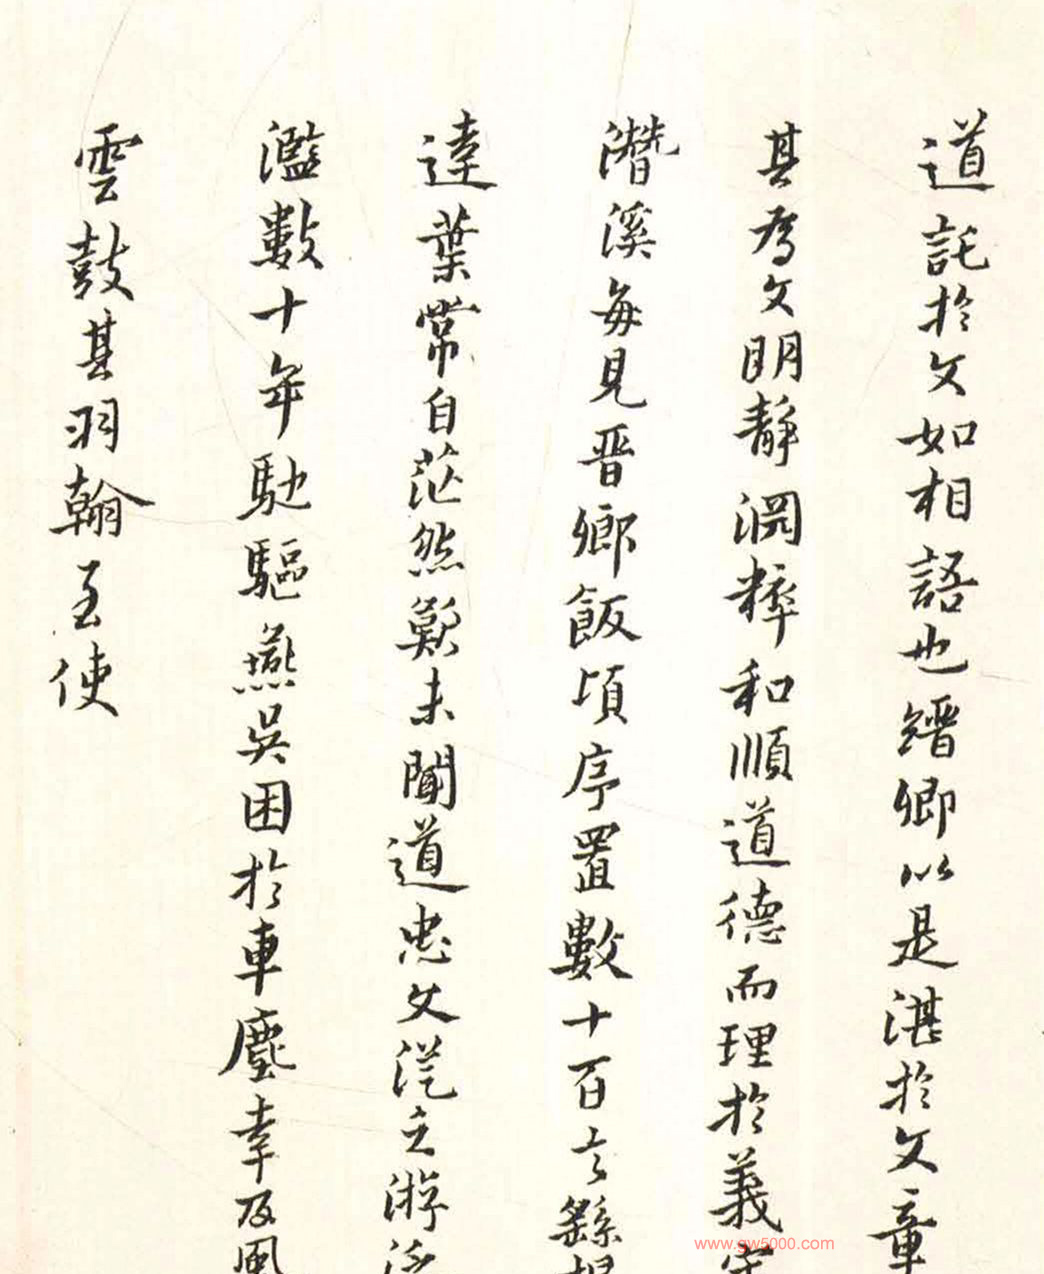 道託於文如相語也縉卿以是湛於文章
其為文明靜淵粹和順道德而理於義
潛溪每見晋卿飯頃序置數十百言繇
達葉常自茫然歎未聞道忠文從之游
濫數十年馳驅燕吳困於車塵幸及風
雲鼓其羽翰至使
www.gw5000.com